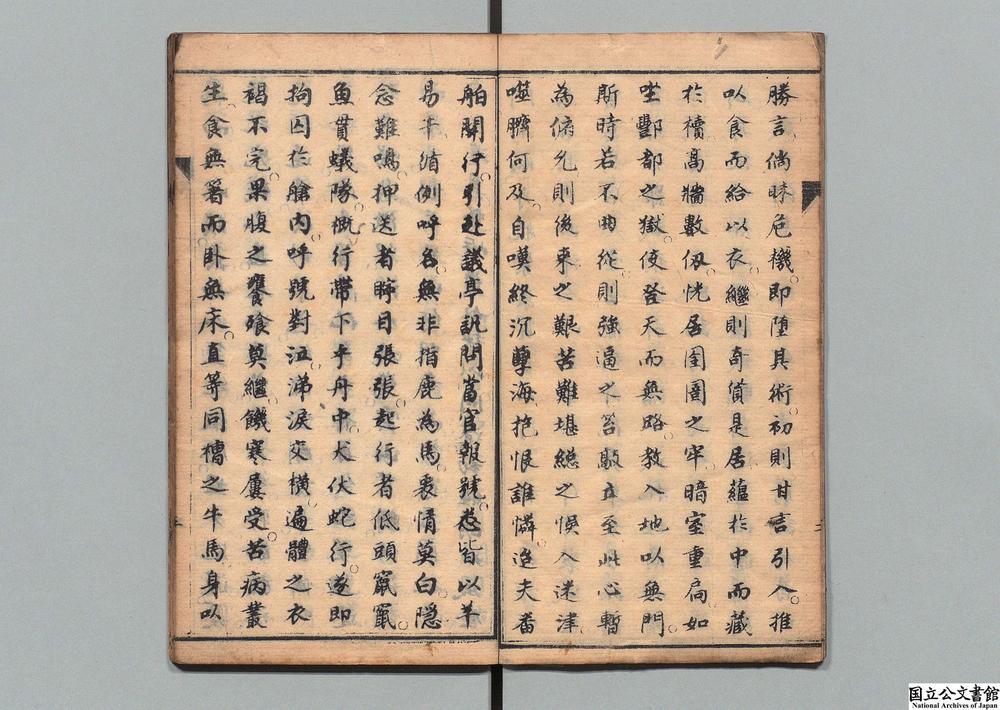 勝言倘昧危機即墮其術初則甘言引入推
以食而給以衣繼則奇貨是居蘊於中而藏
於櫝高牆數仞恍居囹圄之牢暗室重扃如
坐酆都之獄使登天而無路教入地以無門
斯時若不曲從則強逼之笞敲立至此心暫
為俯允則後來之艱苦難堪總之悞入迷津
噬臍何及自嘆終沉孽海抱恨誰憐迨夫番
舶開行引赴議亭訊問當官報號忽皆以羊
易牛循例呼名無非指鹿為馬衷情莫白隱
念難鳴押送者睜目張張起行者低頭竄竄
魚貫蟻隊概行帶下乎舟中犬伏蛇行遂即
拘囚於艙內呼號對泣涕淚交橫遍體之衣
褐不完果腹之饔飧莫繼饑寒屢受苦病叢
生食無箸而卧無床直等同槽之牛馬身以
国立公文書館
National Archives of Japan